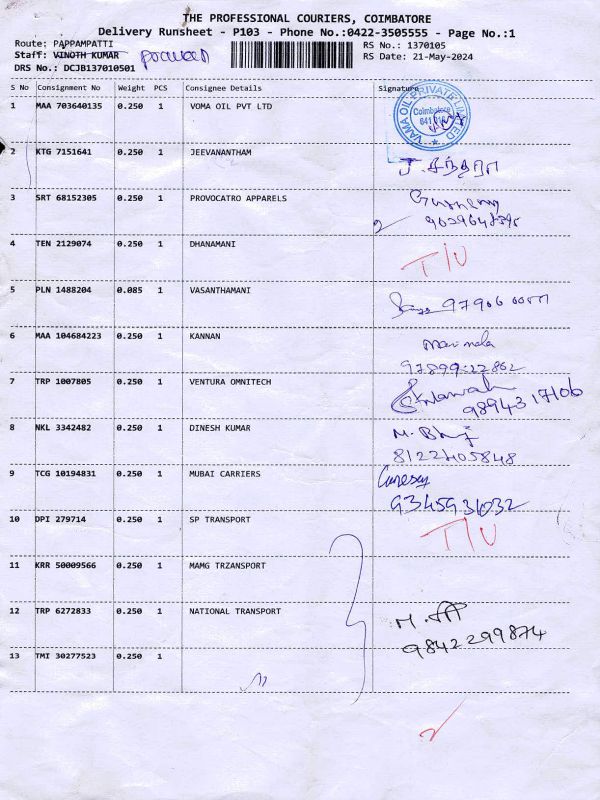 THE PROFESSIONAL COURIERS, COIMBATORE
Delivery Runsheet - P103 - Phone No.:0422-3505555 - Page No.:1
Route: PAPPAMPATTI RS No.: 1370105
Staff: VINOTH KUMAR praveen RS Date: 21-May-2024
DRS No.: DCJB137010501
S No Consignment No Weight PCS Consignee Details Signature
1 MAA 703640135 0.250 1 VOMA OIL PVT LTD
VAMA OIL PRIVATE LIMITED
Coimbatore
2 KTG 7151641 0.250 1 JEEVANANTHAM
3 SRT 68152305 0.250 1 PROVOCATRO APPARELS
4 TEN 2129074 0.250 1 DHANAMANI
T/U
5 PLN 1488204 0.085 1 VASANTHAMANI
6 MAA 104684223 0.250 1 KANNAN
7 TRP 1007805 0.250 1 VENTURA OMNITECH
98943 17106
8 NKL 3342482 0.250 1 DINESH KUMAR
8122405848
9 TCG 10194831 0.250 1 MUBAI CARRIERS
9345931032
10 DPI 279714 0.250 1 SP TRANSPORT
T/U
11 KRR 50009566 0.250 1 MAMG TRZANSPORT
12 TRP 6272833 0.250 1 NATIONAL TRANSPORT
9842299874
13 TMI 30277523 0.250 1